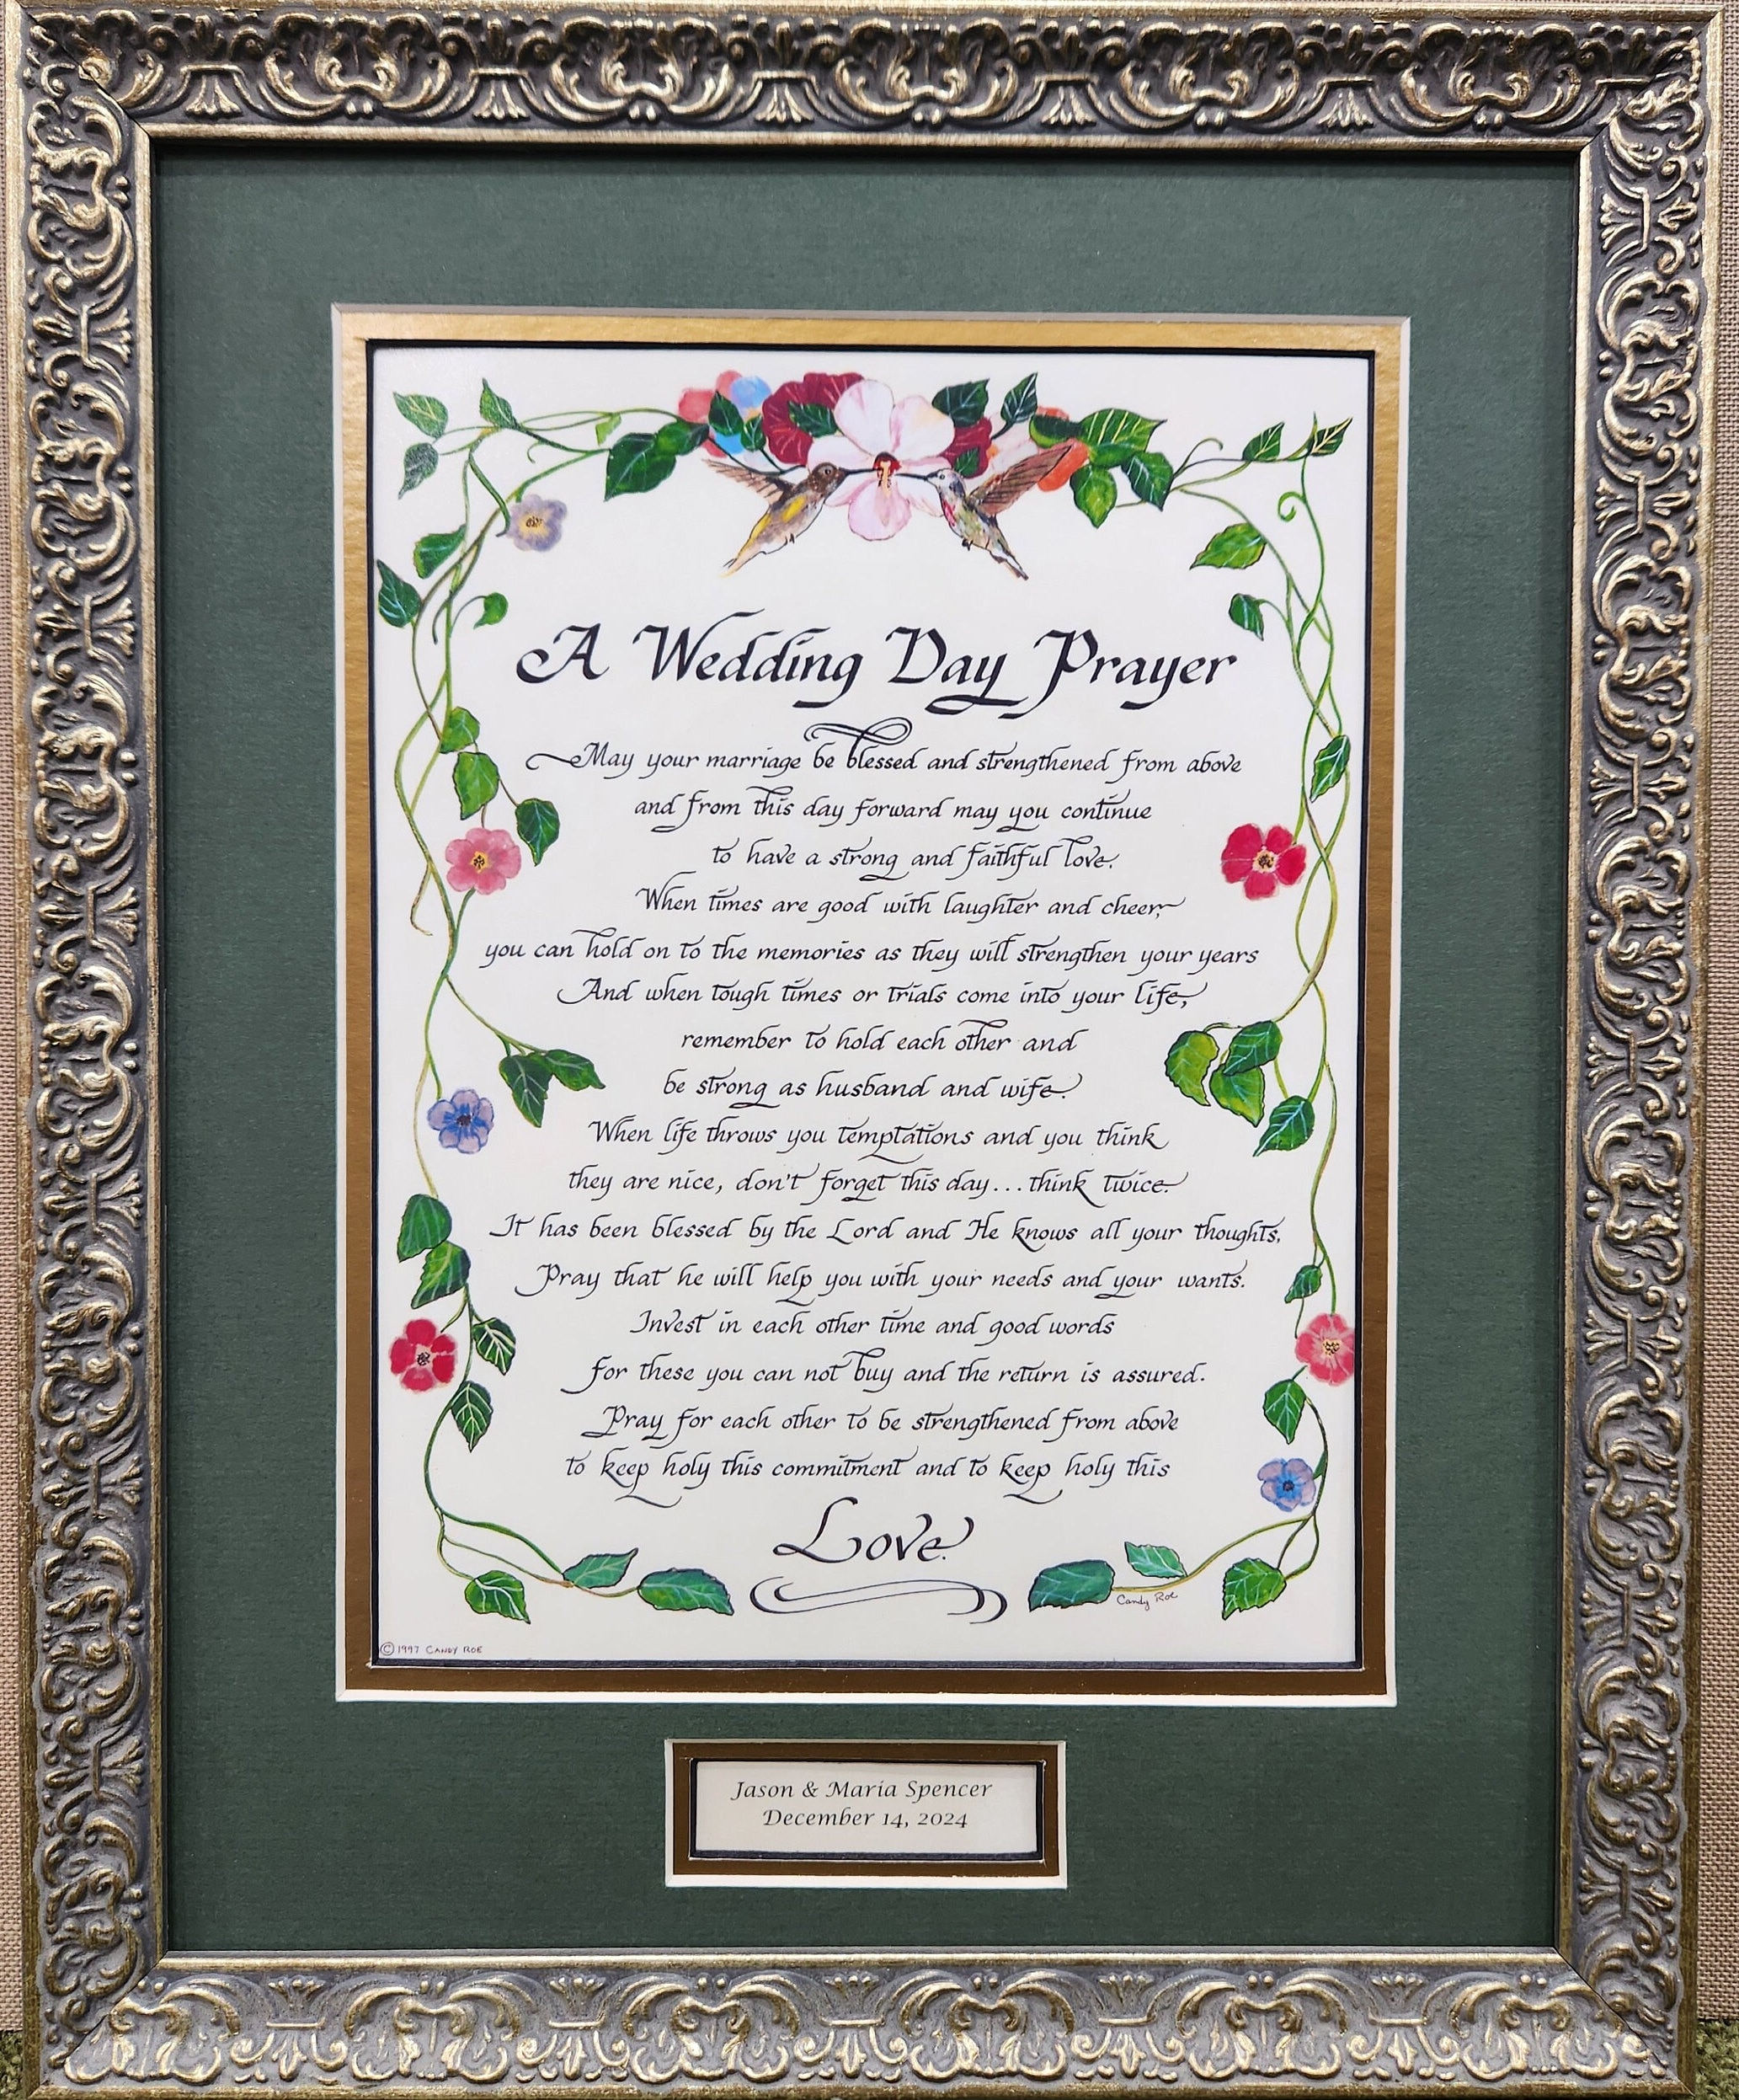 A Wedding Day Prayer
May your marriage be blessed and strengthened from above
and from this day forward may you continue
to have a strong and faithful love.
When times are good with laughter and cheer,
you can hold on to the memories as they will strengthen your years
And when tough times or trials come into your life,
remember to hold each other and
be strong as husband and wife.
When life throws you temptations and you think
they are nice, don't forget this day...think twice.
It has been blessed by the Lord and He knows all your thoughts,
Pray that he will help you with your needs and your wants.
Invest in each other time and good words
for these you can not buy and the return is assured.
Pray for each other to be strengthened from above
to keep holy this commitment and to keep holy this
Love.
Candy Roe
© 1997 CANDY ROE
Jason & Maria Spencer
December 14, 2024